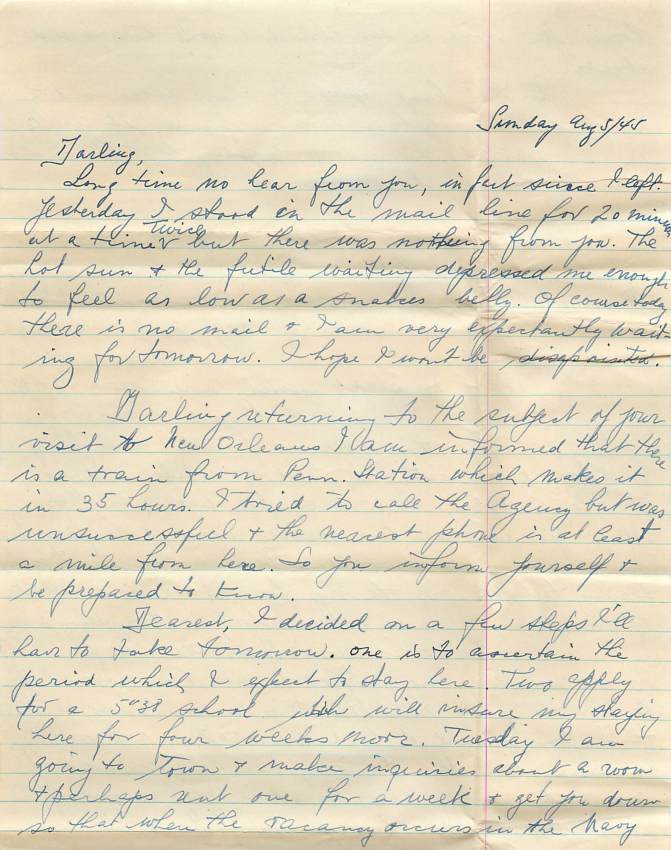 Sunday Aug 5/45
Darling,
Long time no hear from you, in fact since I left.
Yesterday I stood in the mail line for 20 minutes
at a time twice but there was nothing from you. The
hot sun & the futile waiting depressed me enough
to feel as low as a snakes belly. Of course today
there is no mail & I am very expectantly wait-
ing for tomorrow. I hope I won't be
Darling returning to the subject of your
visit to New Orleans I am informed that there
is a train from Penn. Station which makes it
in 35 hours. I tried to call the Agency but was
unsuccessful & the nearest phone is at least
a mile from here. So you inform yourself &
be prepared to know.
Dearest, I decided on a few steps I'll
have to take tomorrow. one is to ascertain the
period which I expect to stay here. Two apply
for a 5"38 school which will insure my staying
here for four weeks more. Tuesday I am
going to Town & make inquiries about a room
& perhaps rent one for a week & get you down
so that when the vacancy occurs in the Navy